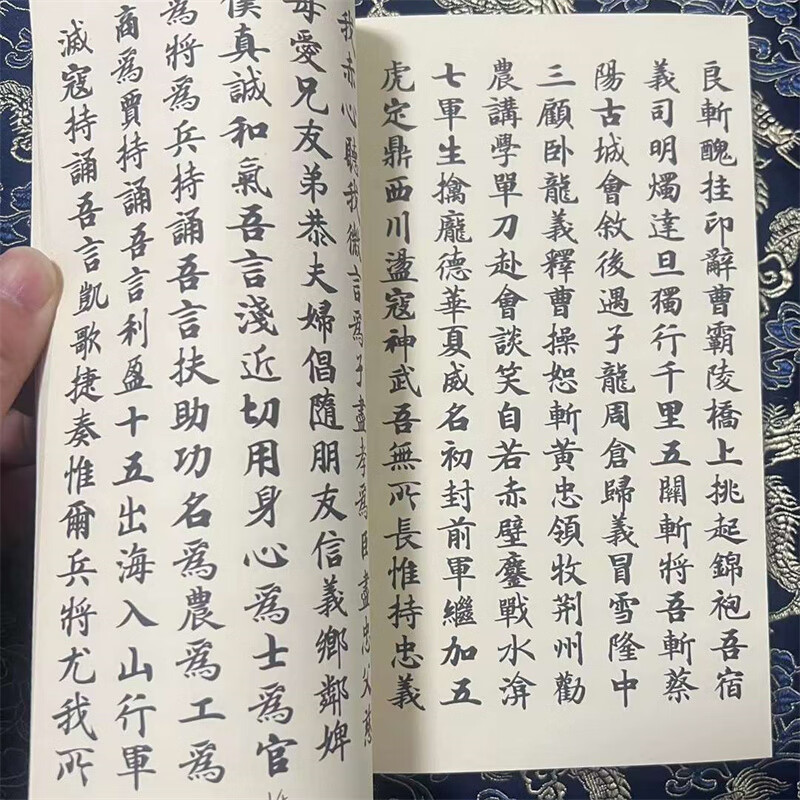 良斬醜挂印辭曹霸陵橋上挑起錦袍吾宿
義司明燭達旦獨行千里五關斬將吾斬蔡
陽古城會敘後遇子龍周倉歸義冒雪隆中
三顧卧龍義釋曹操恕斬黃忠領牧荊州勸
農講學單刀赴會談笑自若赤壁鏖戰水渰
七軍生擒龐德華夏威名初封前軍繼加五
虎定鼎西川盪寇神武吾無所長惟持忠義
我赤心聽我微言爲子盡孝爲臣盡忠父慈
母愛兄友弟恭夫婦倡隨朋友信義鄉鄰婢
僕真誠和氣吾言淺近切用身心爲士爲官
爲將爲兵持誦吾言扶助功名爲農爲工爲
商爲賈持誦吾言利盈十五出海入山行軍
滅寇持誦吾言凱歌捷奏惟爾兵將尤我所